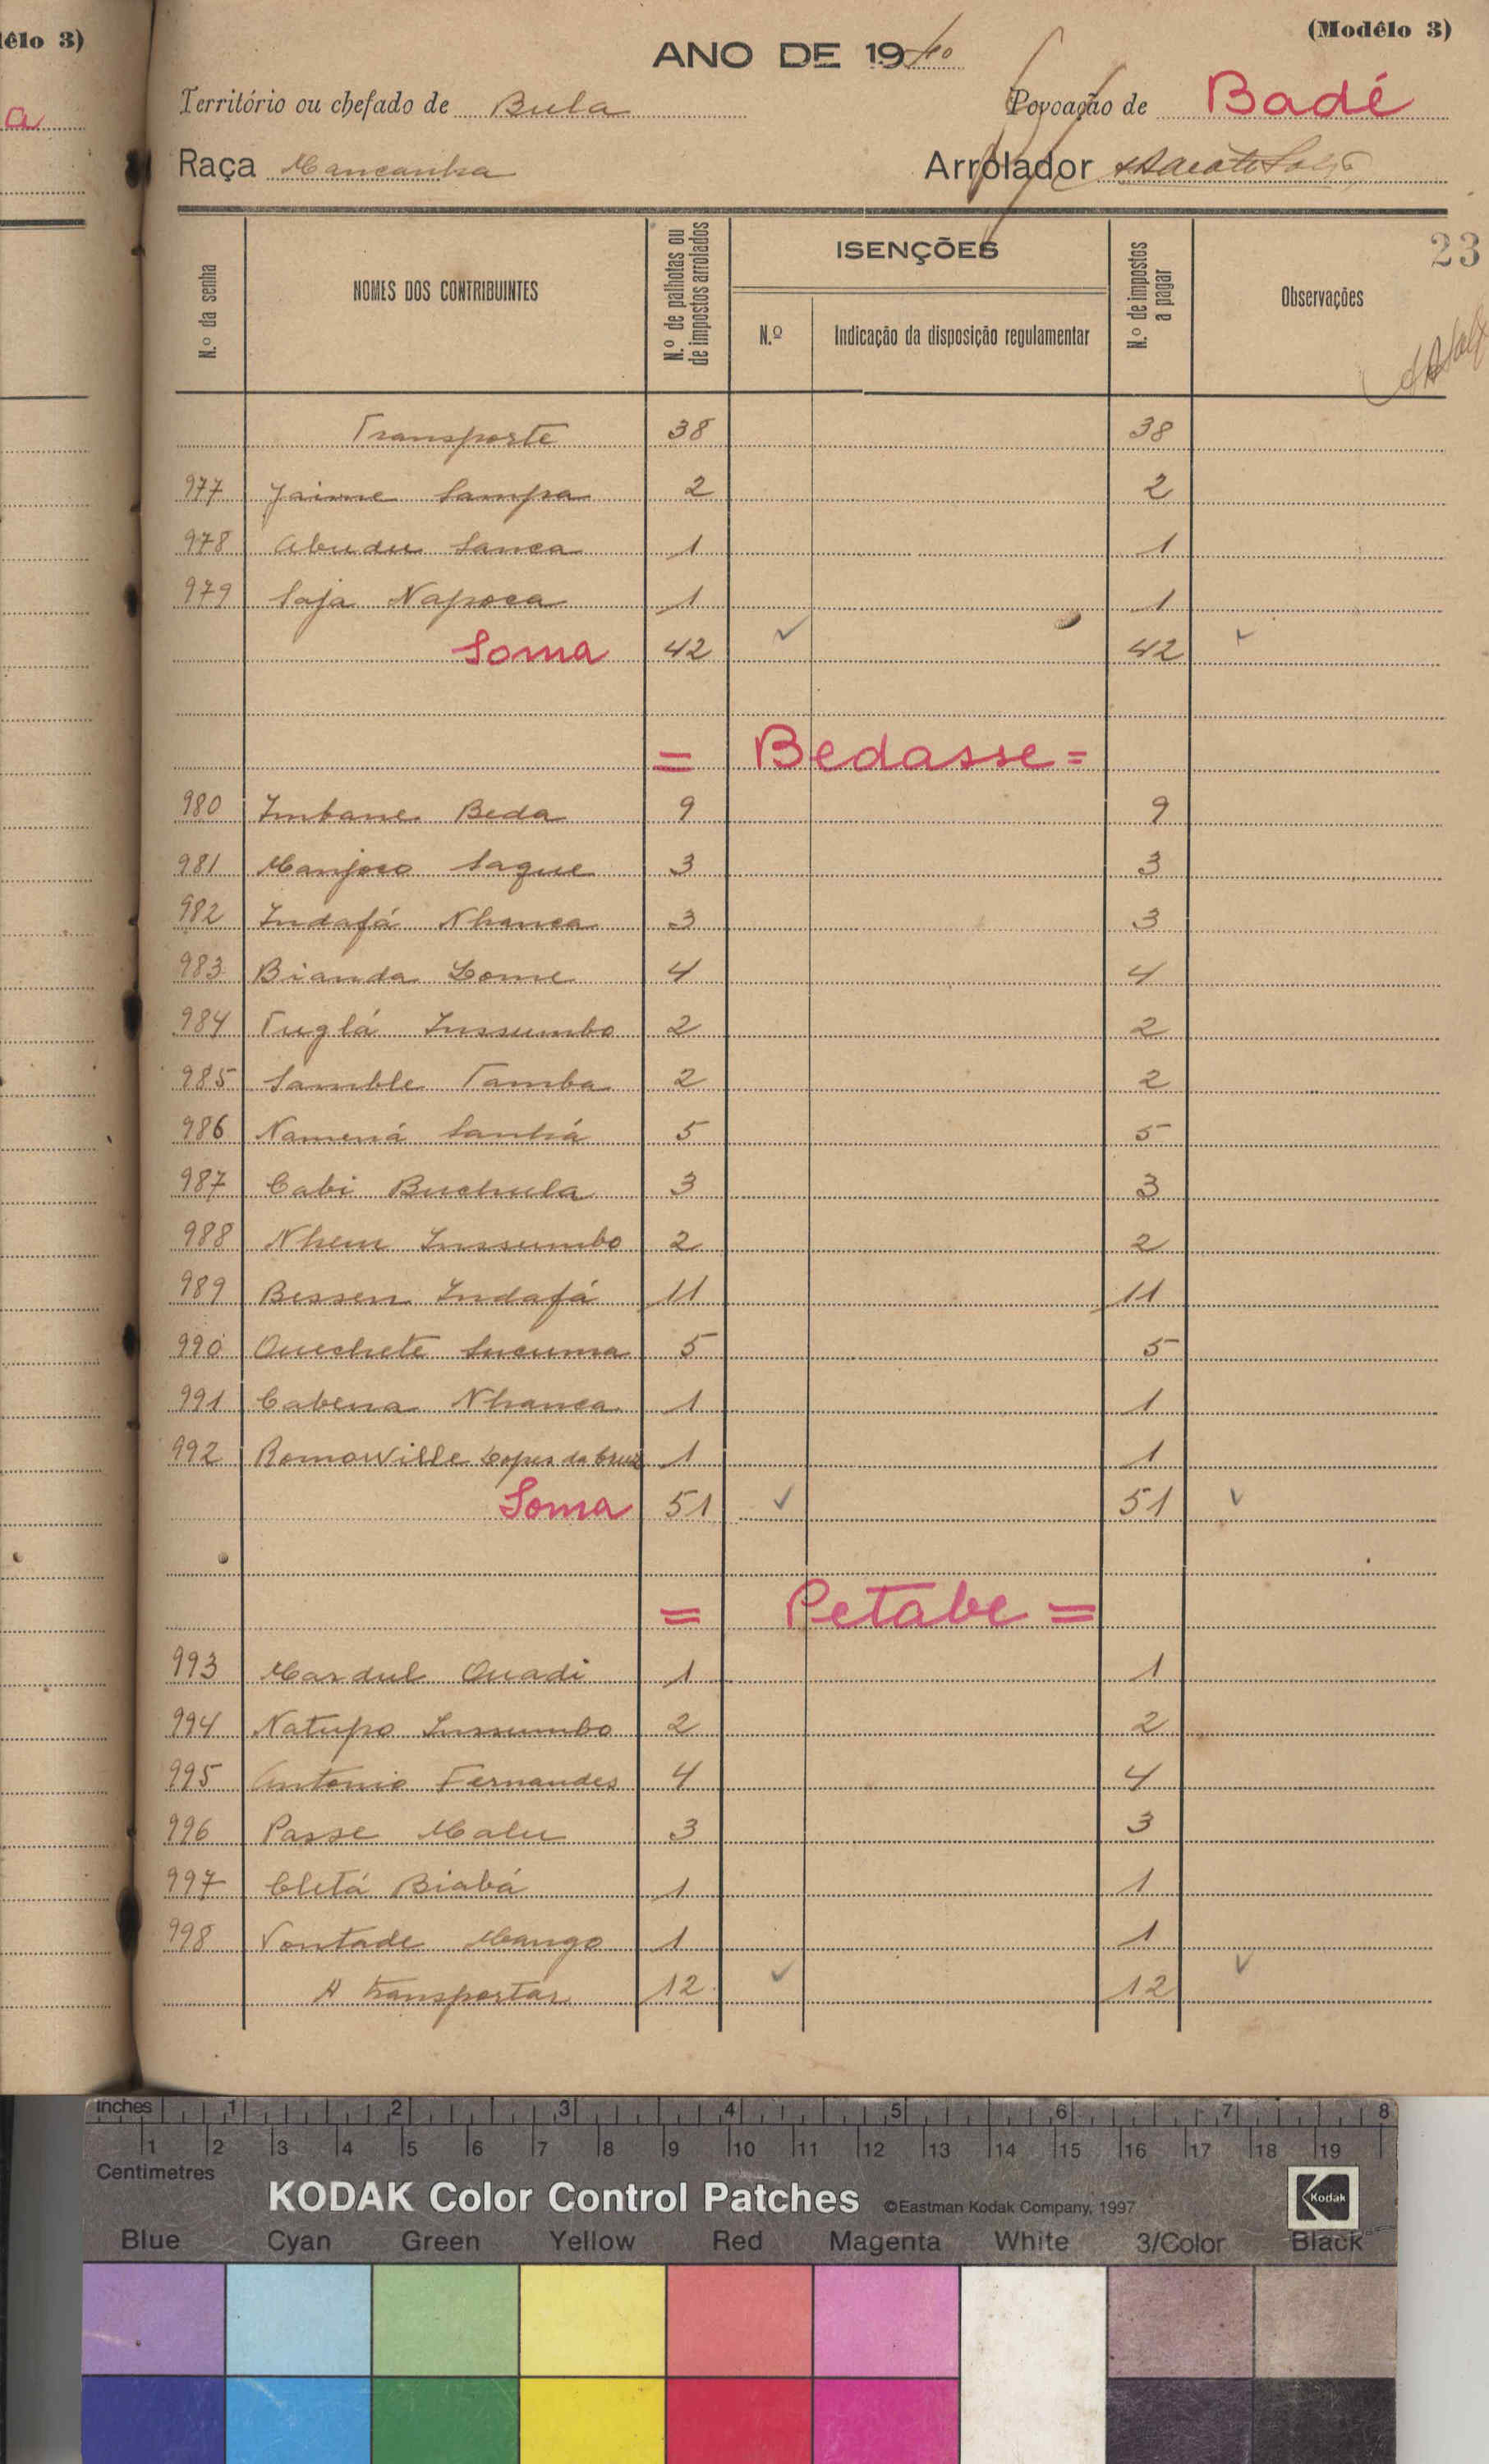 élo 3)
a
(Modêlo 3)
ANO DE 1940
Território ou chefado de Bula
Povoação de Badé
Raça Mancanha
Arrolador
23
N.º da senha
NOMES DOS CONTRIBUINTES
N.º de palhotas ou de impostos arrolados
ISENÇÕES
N.º
Indicação da disposição regulamentar
N.º de impostos a pagar
Observações
Transporte 38 38
977 Jaime Sampa 2 2
978 Abudu Sanca 1 1
979 Saja Napoca 1 1
Soma 42 42
= Bedasse =
980 Imbane Beda 9 9
981 Manjoco Saque 3 3
982 Indafá Nhanca 3 3
983 Bianda Come 4 4
984 Tuglá Inssumbo 2 2
985 Samble Tamba 2 2
986 Namená Sanhá 5 5
987 Cabi Buchula 3 3
988 Nhem Inssumbo 2 2
989 Bessen Indafá 11 11
990 Quechete Sucuma 5 5
991 Cabena Nhanca 1 1
992 Romowille Lopes da Cruz 1 1
Soma 51 51
= Petabe =
993 Mardul Quadi 1 1
994 Natupo Inssumbo 2 2
995 Antonio Fernandes 4 4
996 Passe Malu 3 3
997 Cletá Biabá 1 1
998 Vontade Mango 1 1
A transportar 12 12
inches 1 2 3 4 5 6 7 8
1 2 3 4 5 6 7 8 9 10 11 12 13 14 15 16 17 18 19
Centimetres
KODAK Color Control Patches ©Eastman Kodak Company, 1997
Kodak
Blue Cyan Green Yellow Red Magenta White 3/Color Black